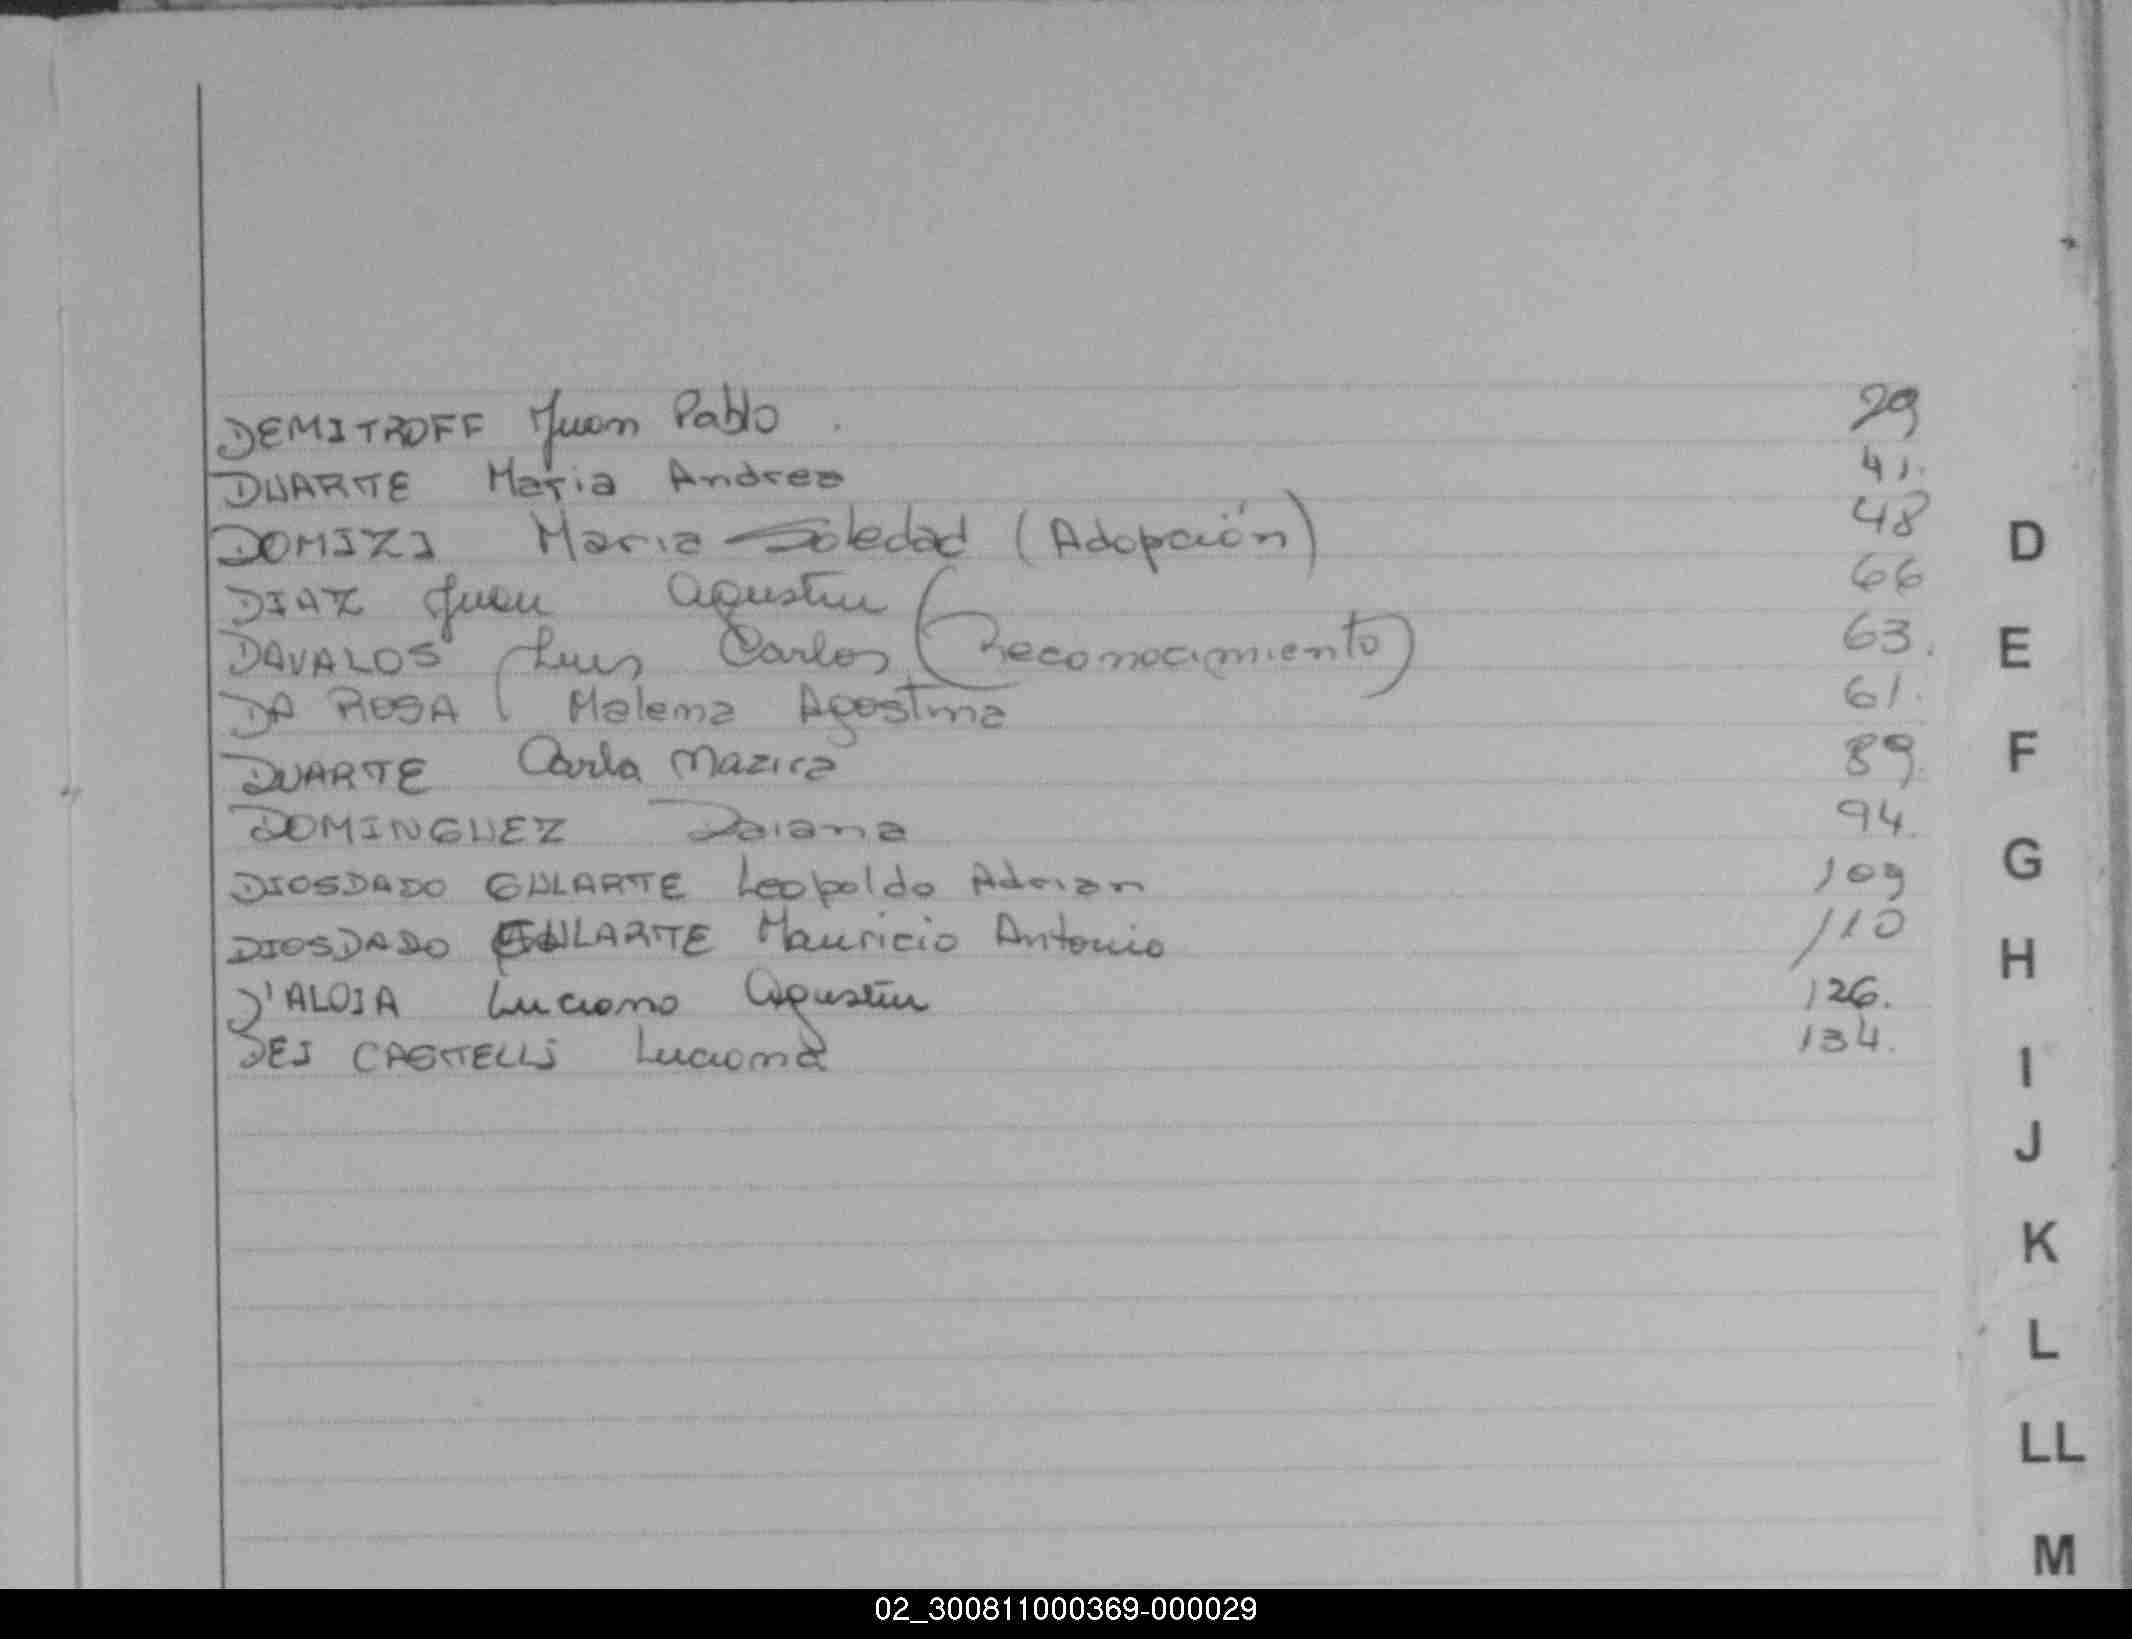 DEMITROFF Juan Pablo 29
DUARTE Maria Andrea 41.
DOMIZI Maria Soledad (Adopción) 48
DIAZ Juan Agustin 66
DAVALOS Luis Carlos (Reconocimiento) 63.
DA ROSA Malema Agostina 61.
DUARTE Carla 89.
DOMINGUEZ Daiana 94.
DIOSDADO GULARTE Leopoldo Adrian 109
DIOSDADO GULARTE Mauricio Antonio 110
D'ALOIA Luciano Agustin 126.
DEI CASTELLI Luciana 134.
D
E
F
G
H
I
J
K
L
LL
M
02_300811000369-000029